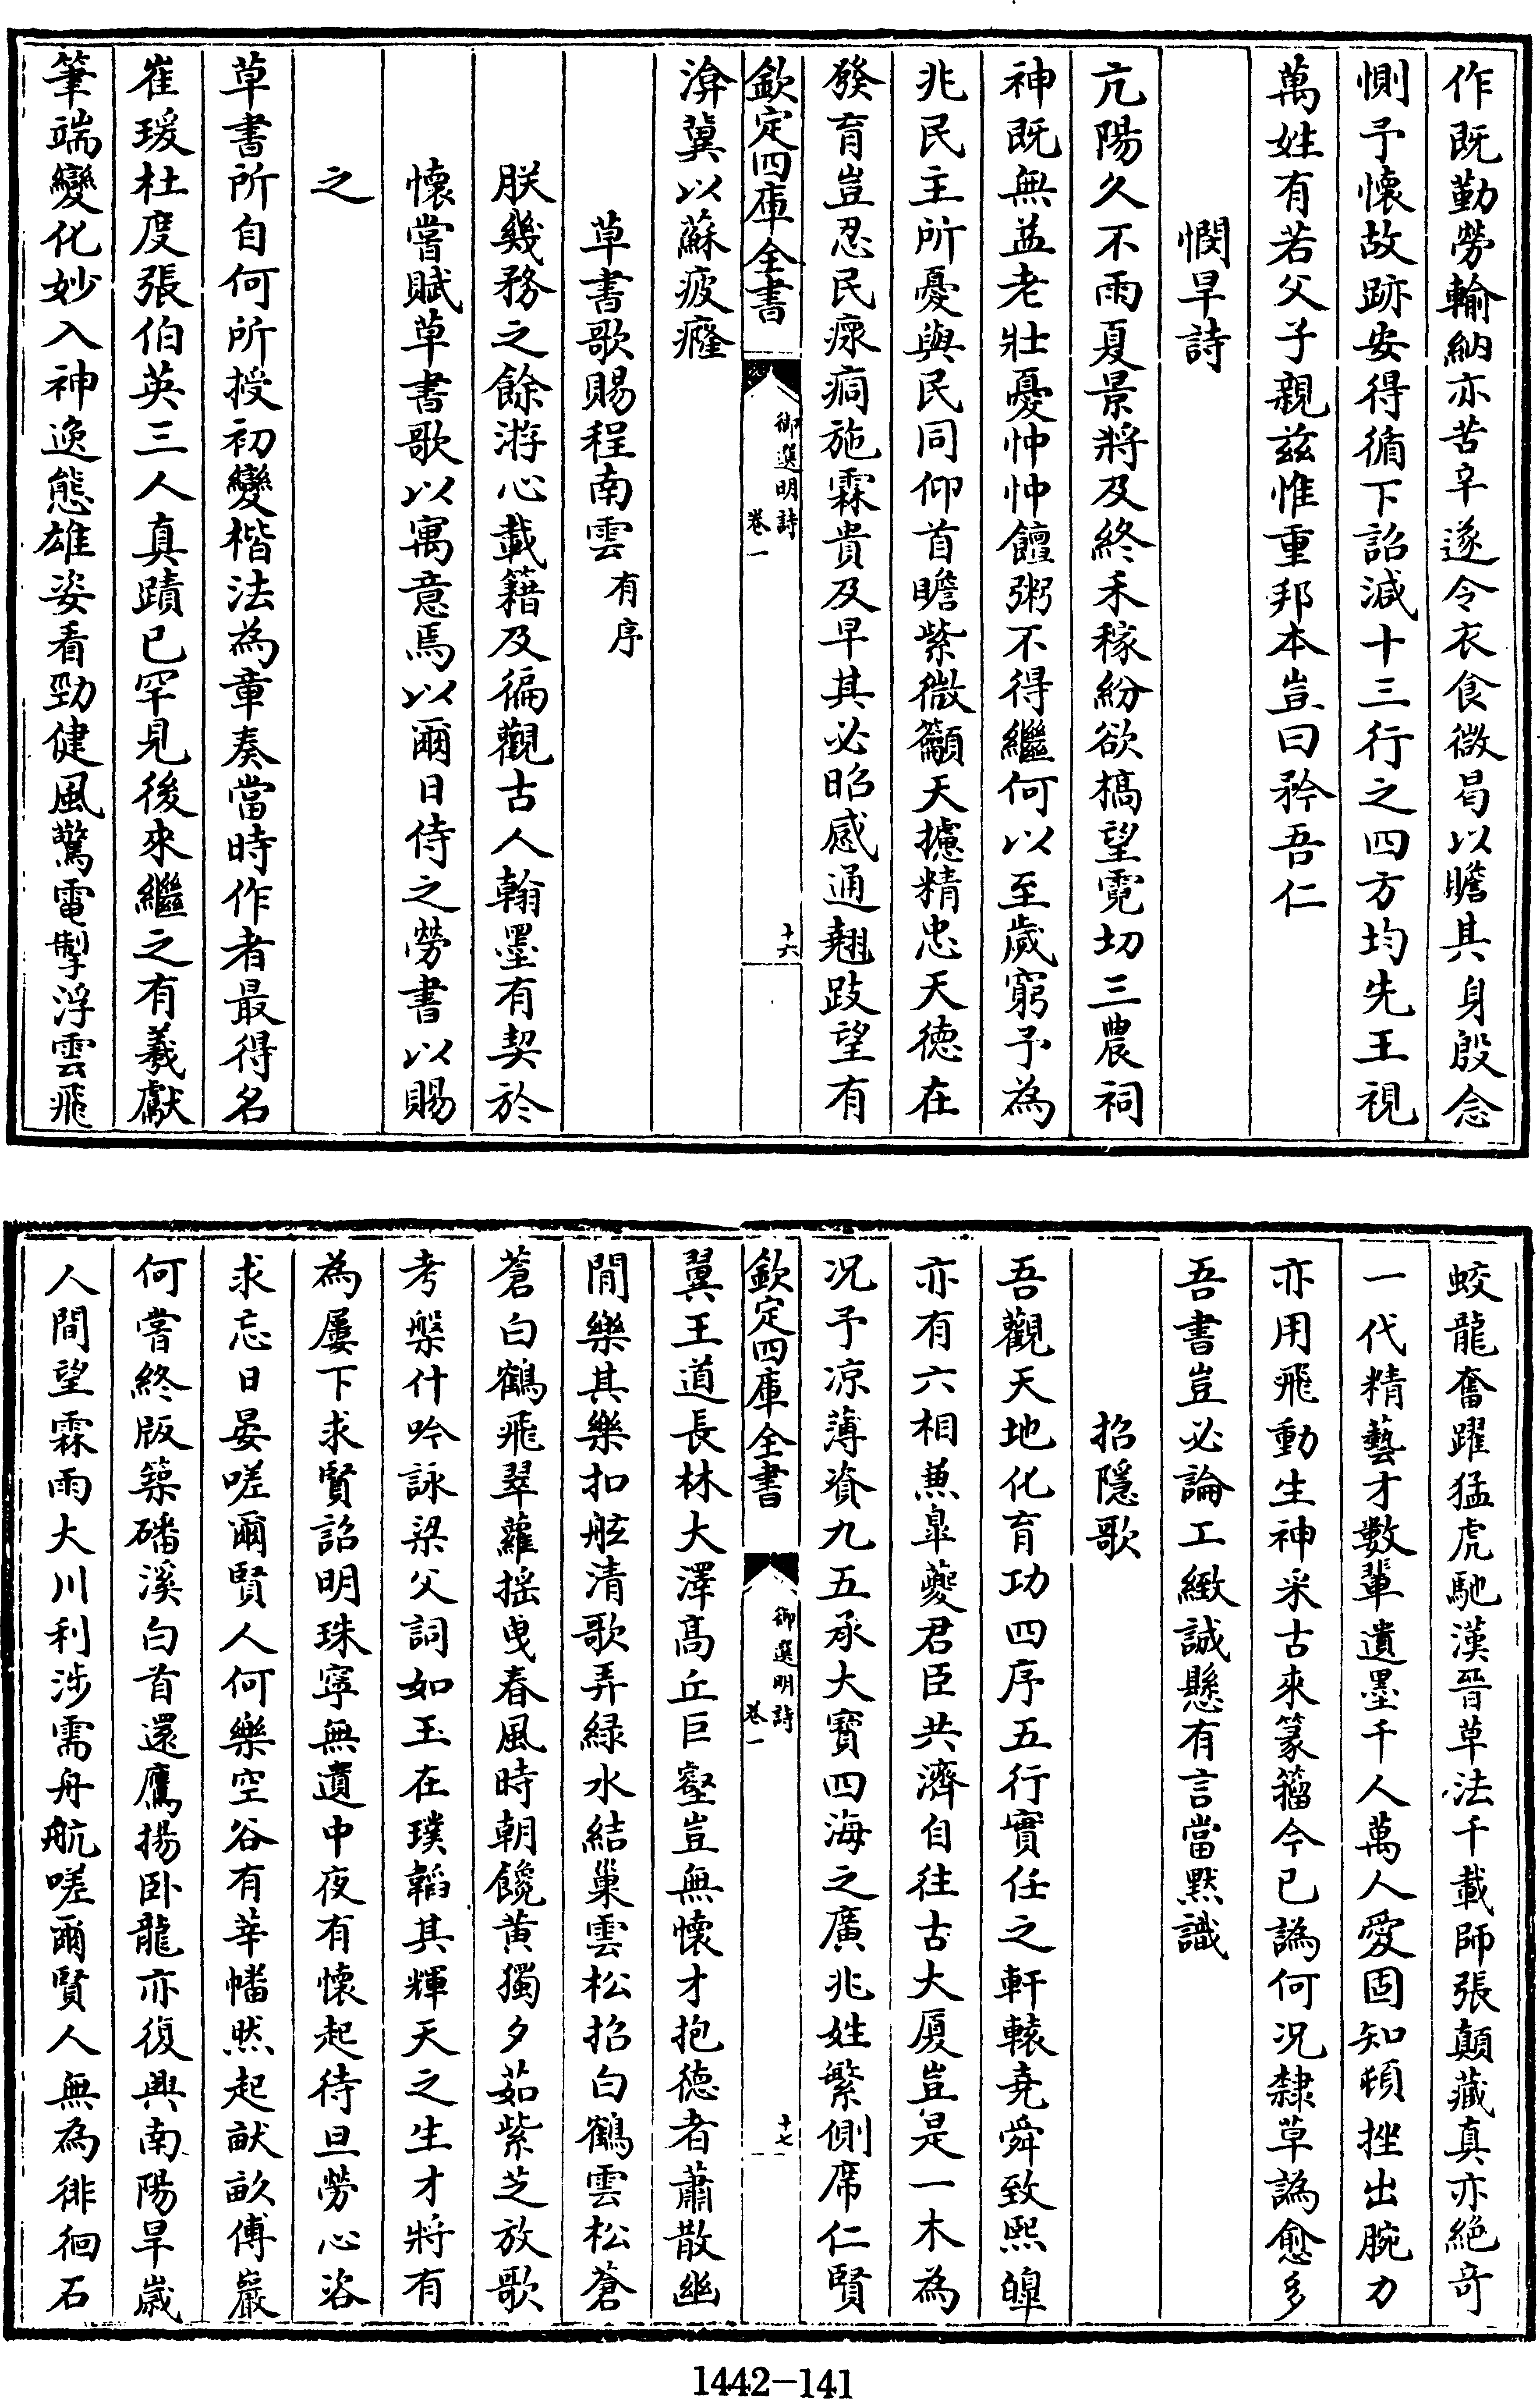 作既勤勞輸納亦苦辛遂令衣食微曷以贍其身殷念
惻予懷故跡安得循下詔減十三行之四方均先王視
萬姓有若父子親兹惟重邦本豈曰矜吾仁
憫旱詩
亢陽久不雨夏景將及終禾稼紛欲槁望霓切三農祠
神既無益老壯憂忡忡饘粥不得繼何以至歲窮予為
兆民主所憂與民同仰首瞻紫微籲天攄精忠天德在
發育豈忍民瘝痌施霖貴及早其必昭感通翹跂望有
欽定四庫全書
御選明詩
卷一
十六
渰冀以蘇疲癃
草書歌賜程南雲有序
朕幾務之餘游心載籍及徧觀古人翰墨有契於
懷嘗賦草書歌以寓意焉以爾日侍之勞書以賜
之
草書所自何所授初變楷法為章奏當時作者最得名
崔瑗杜度張伯英三人真蹟已罕見後來繼之有羲獻
筆端變化妙入神逸態雄姿看勁健風驚電掣浮雲飛
蛟龍奮躍猛虎馳漢晉草法千載師張顛藏真亦絕奇
一代精藝才數輩遺墨千人萬人愛固知頓挫出腕力
亦用飛動生神采古來篆籀今已譌何况隸草譌愈多
吾書豈必論工緻誠懸有言當默識
招隱歌
吾觀天地化育功四序五行實任之軒轅堯舜致熙皡
亦有六相兼臯夔君臣共濟自往古大厦豈是一木為
况予凉薄資九五承大寳四海之廣兆姓繁側席仁賢
欽定四庫全書
御選明詩
卷一
十七
翼王道長林大澤髙丘巨壑豈無懷才抱德者蕭散幽
閒樂其樂扣舷清歌弄緑水結巢雲松招白鶴雲松蒼
蒼白鶴飛翠蘿搖曳春風時朝饞黄獨夕茹紫芝放歌
考槃什吟詠梁父詞如玉在璞韜其輝天之生才將有
為屢下求賢詔明珠寧無遺中夜有懷起待旦勞心咨
求忘日晏嗟爾賢人何樂空谷有莘幡然起畎畝傅巖
何嘗終版築磻溪白首還鷹揚卧龍亦復興南陽旱歲
人間望霖雨大川利涉需舟航嗟爾賢人無為徘徊石
1442-141